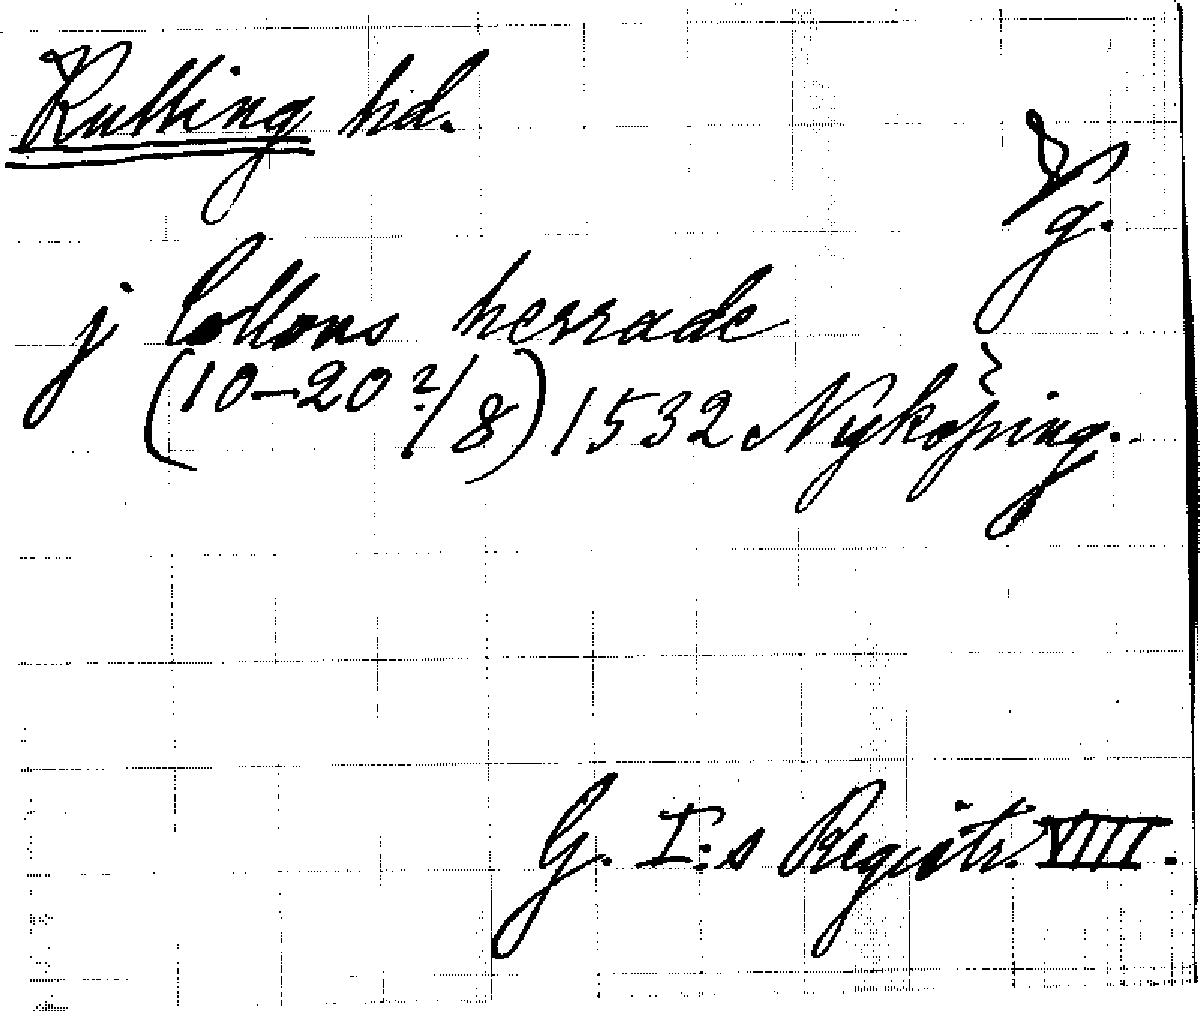 Kulling hd.
Vg.
j Collons herrade
(10–20 ?/8) 1532 Nyköping.
G. I:s Registr. VIII.